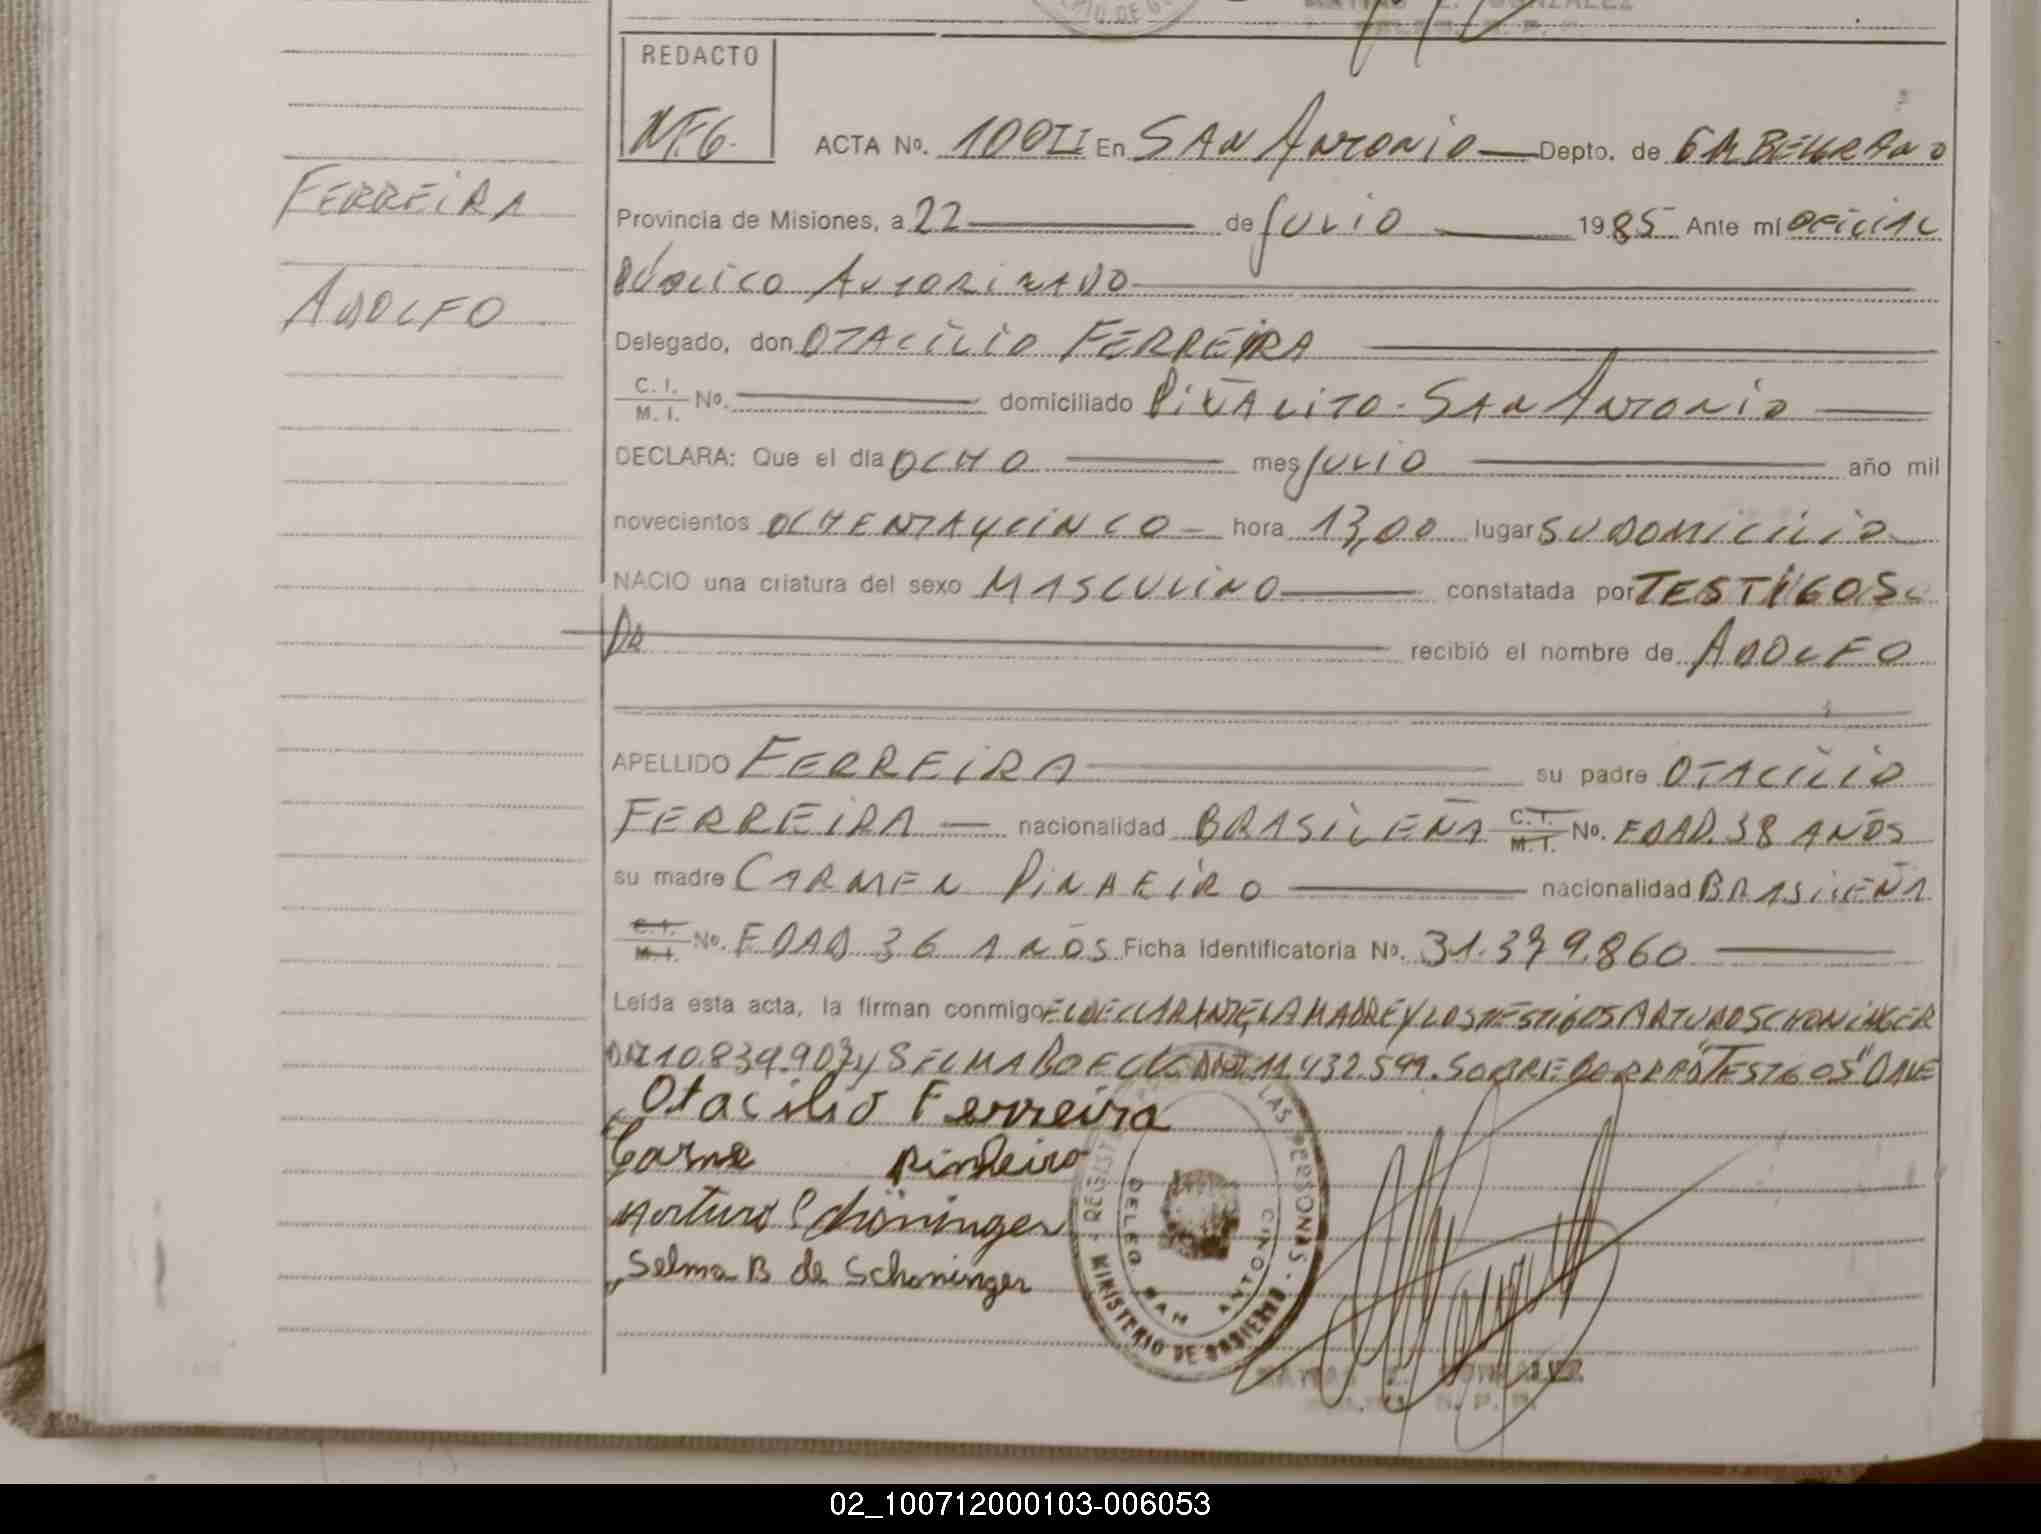 REDACTO
N.F.G.
FERREIRA
ADOLFO
ACTA No. 100 II En SAN ANTONIO Depto. de GM BELGRANO
Provincia de Misiones, a 22 de JULIO 1985 Ante mí OFICIAL
PÚBLICO AUTORIZADO
Delegado, don OTACILIO FERREIRA
C. I. / M. I. No. domiciliado PIÑALITO - SAN ANTONIO
DECLARA: Que el día OCHO mes JULIO año mil
novecientos OCHENTA Y CINCO hora 13,00 lugar SU DOMICILIO
NACIO una criatura del sexo MASCULINO constatada por TESTIGOS
recibió el nombre de ADOLFO
APELLIDO FERREIRA su padre OTACILIO
FERREIRA nacionalidad BRASILEÑA C. I. / M. I. No. EDAD. 38 AÑOS
su madre CARMEN PINHEIRO nacionalidad BRASILEÑA
C. I. / M. I. No. EDAD 36 AÑOS Ficha Identificatoria No. 31.379.860
Leída esta acta, la firman conmigo EL DECLARANTE, LA MADRE Y LOS TESTIGOS ARTURO SCHONINGER
DNI 10.839.907 y SELMA BOECK DNI 11.432.599. SOBRE BORRADO "TESTIGOS" VALE
Otacilio Ferreira
Carme Pinheiro
Arturo Schöninger
Selma B de Schoninger
LAS PERSONAS - MINISTERIO DE GOBIERNO
DELEG SAN ANTONIO
02_100712000103-006053